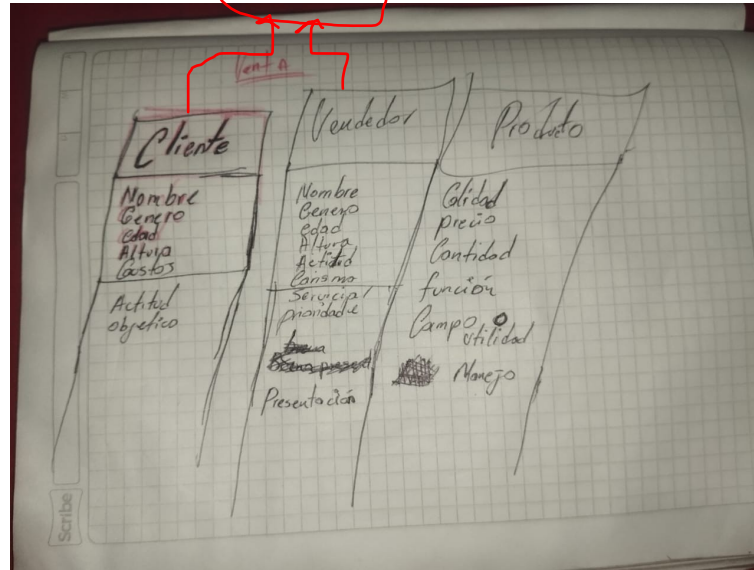 Venta
Cliente
Nombre
Genero
edad
Altura
Gustos
Actitud
objetico
Vendedor
Nombre
Genero
edad
Altura
Actitud
Carisma
Servicial
prioridade
Presentación
Producto
Calidad
precio
Cantidad
función
Campo o
utilidad
Manejo
Scribe